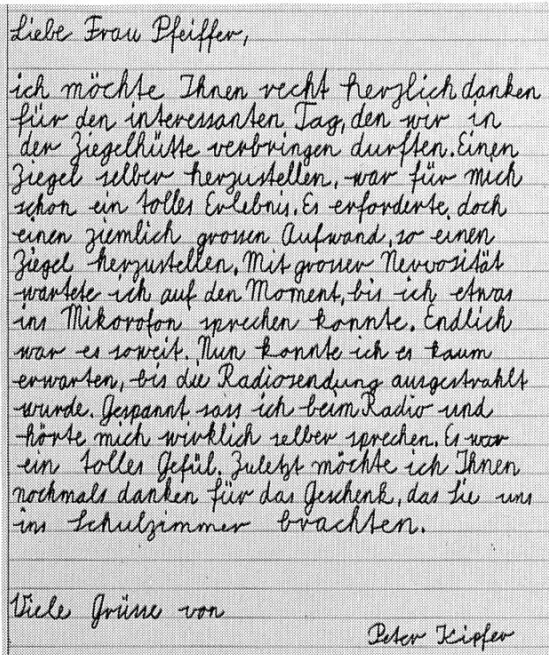 Liebe Frau Pfeiffer,
ich möchte Ihnen recht herzlich danken
für den interessanten Tag, den wir in
der Ziegelhütte verbringen durften. Einen
Ziegel selber herzustellen, war für mich
schon ein tolles Erlebnis. Es erforderte, doch
einen ziemlich grossen Aufwand, so einen
Ziegel herzustellen. Mit grosser Nervosität
wartete ich auf den Moment, bis ich etwas
ins Mikorofon sprechen konnte. Endlich
war es soweit. Nun konnte ich es kaum
erwarten, bis die Radiosendung ausgestrahlt
wurde. Gespannt sass ich beim Radio und
hörte mich wirklich selber sprechen. Es war
ein tolles Gefül. Zuletzt möchte ich Ihnen
nochmals danken für das Geschenk, das Sie uns
ins Schulzimmer brachten.
Viele Grüsse von
Peter Kipfer